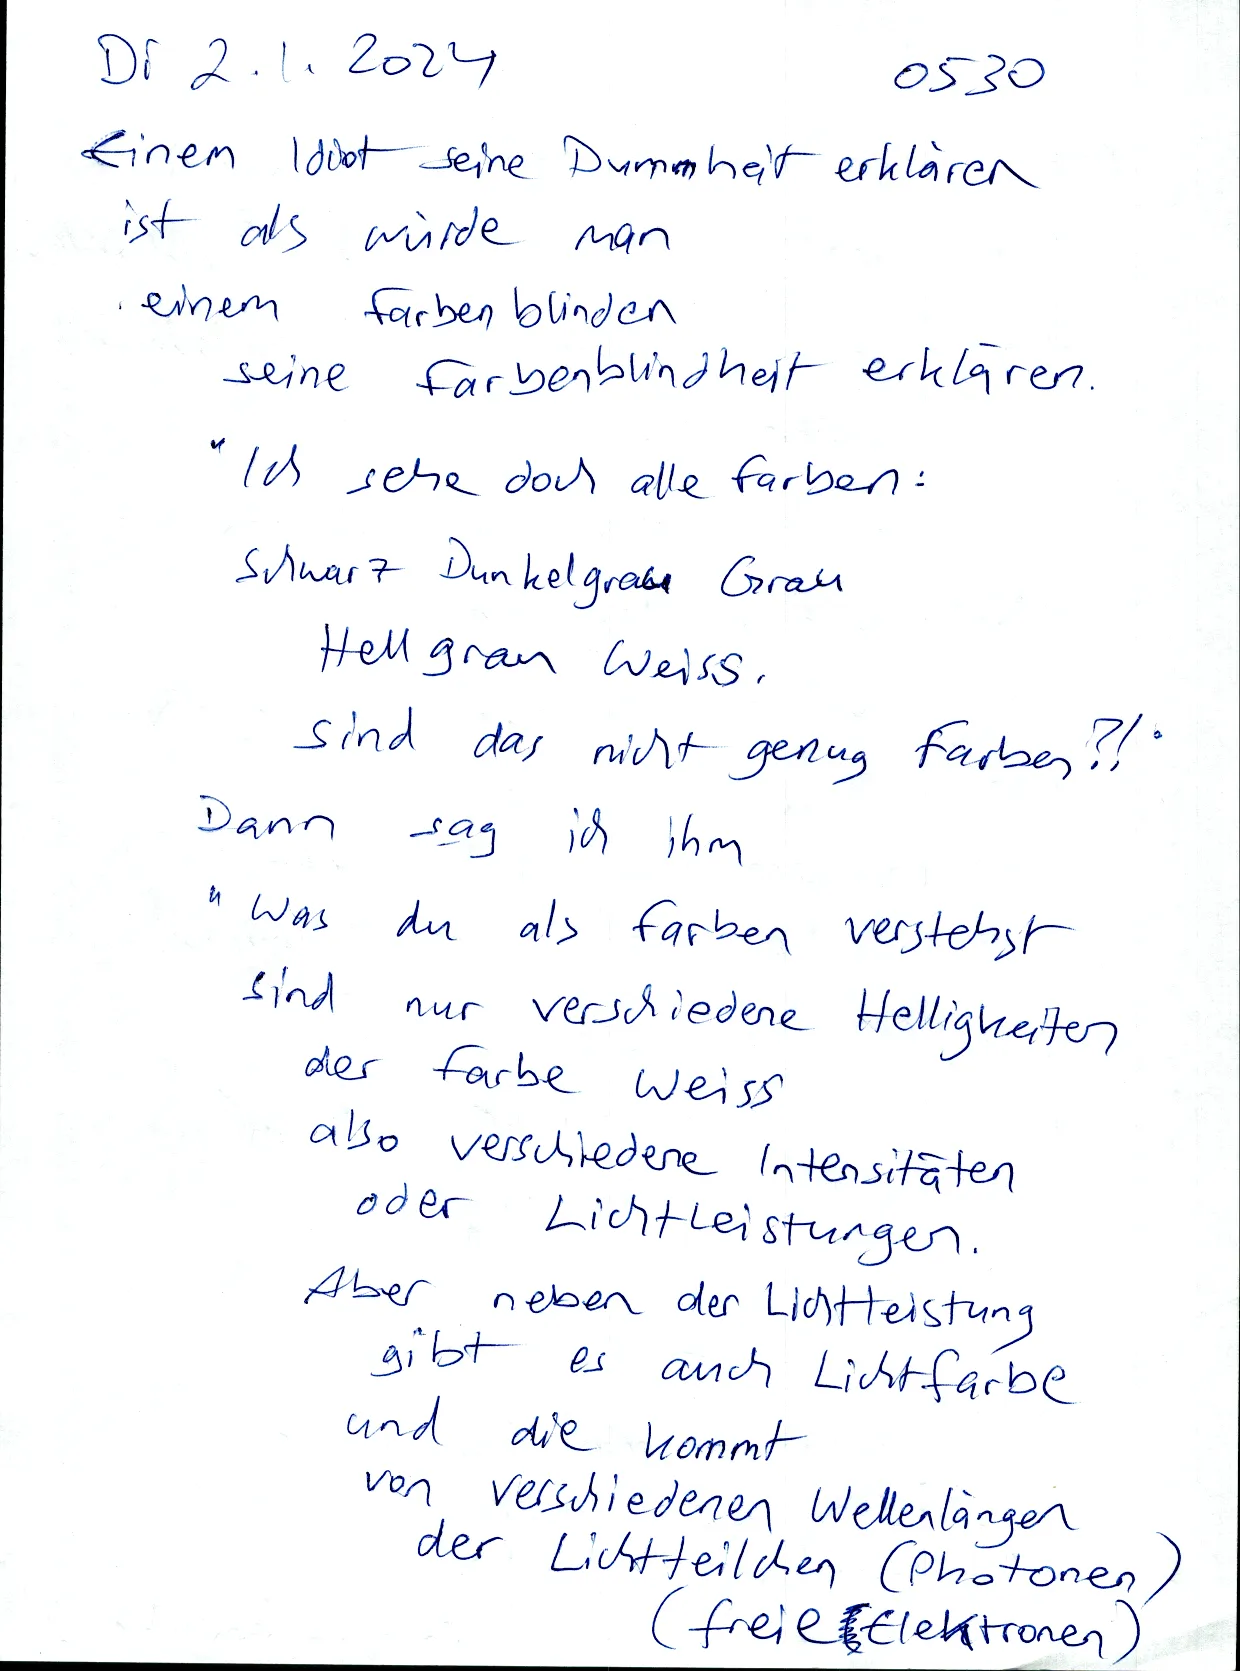 Di 2.1.2024 0530
Einem Idiot seine Dummheit erklären
ist als würde man
einem Farbenblinden
seine Farbenblindheit erklären.
"Ich sehe doch alle Farben:
Schwarz Dunkelgrau Grau
Hellgrau Weiss.
Sind das nicht genug Farben?!"
Dann sag ich ihm
"Was du als Farben verstehst
sind nur verschiedene Helligkeiten
der Farbe Weiss
also verschiedene Intensitäten
oder Lichtleistungen.
Aber neben der Lichtleistung
gibt es auch Lichtfarbe
und die kommt
von verschiedenen Wellenlängen
der Lichtteilchen (Photonen)
(freie Elektronen)